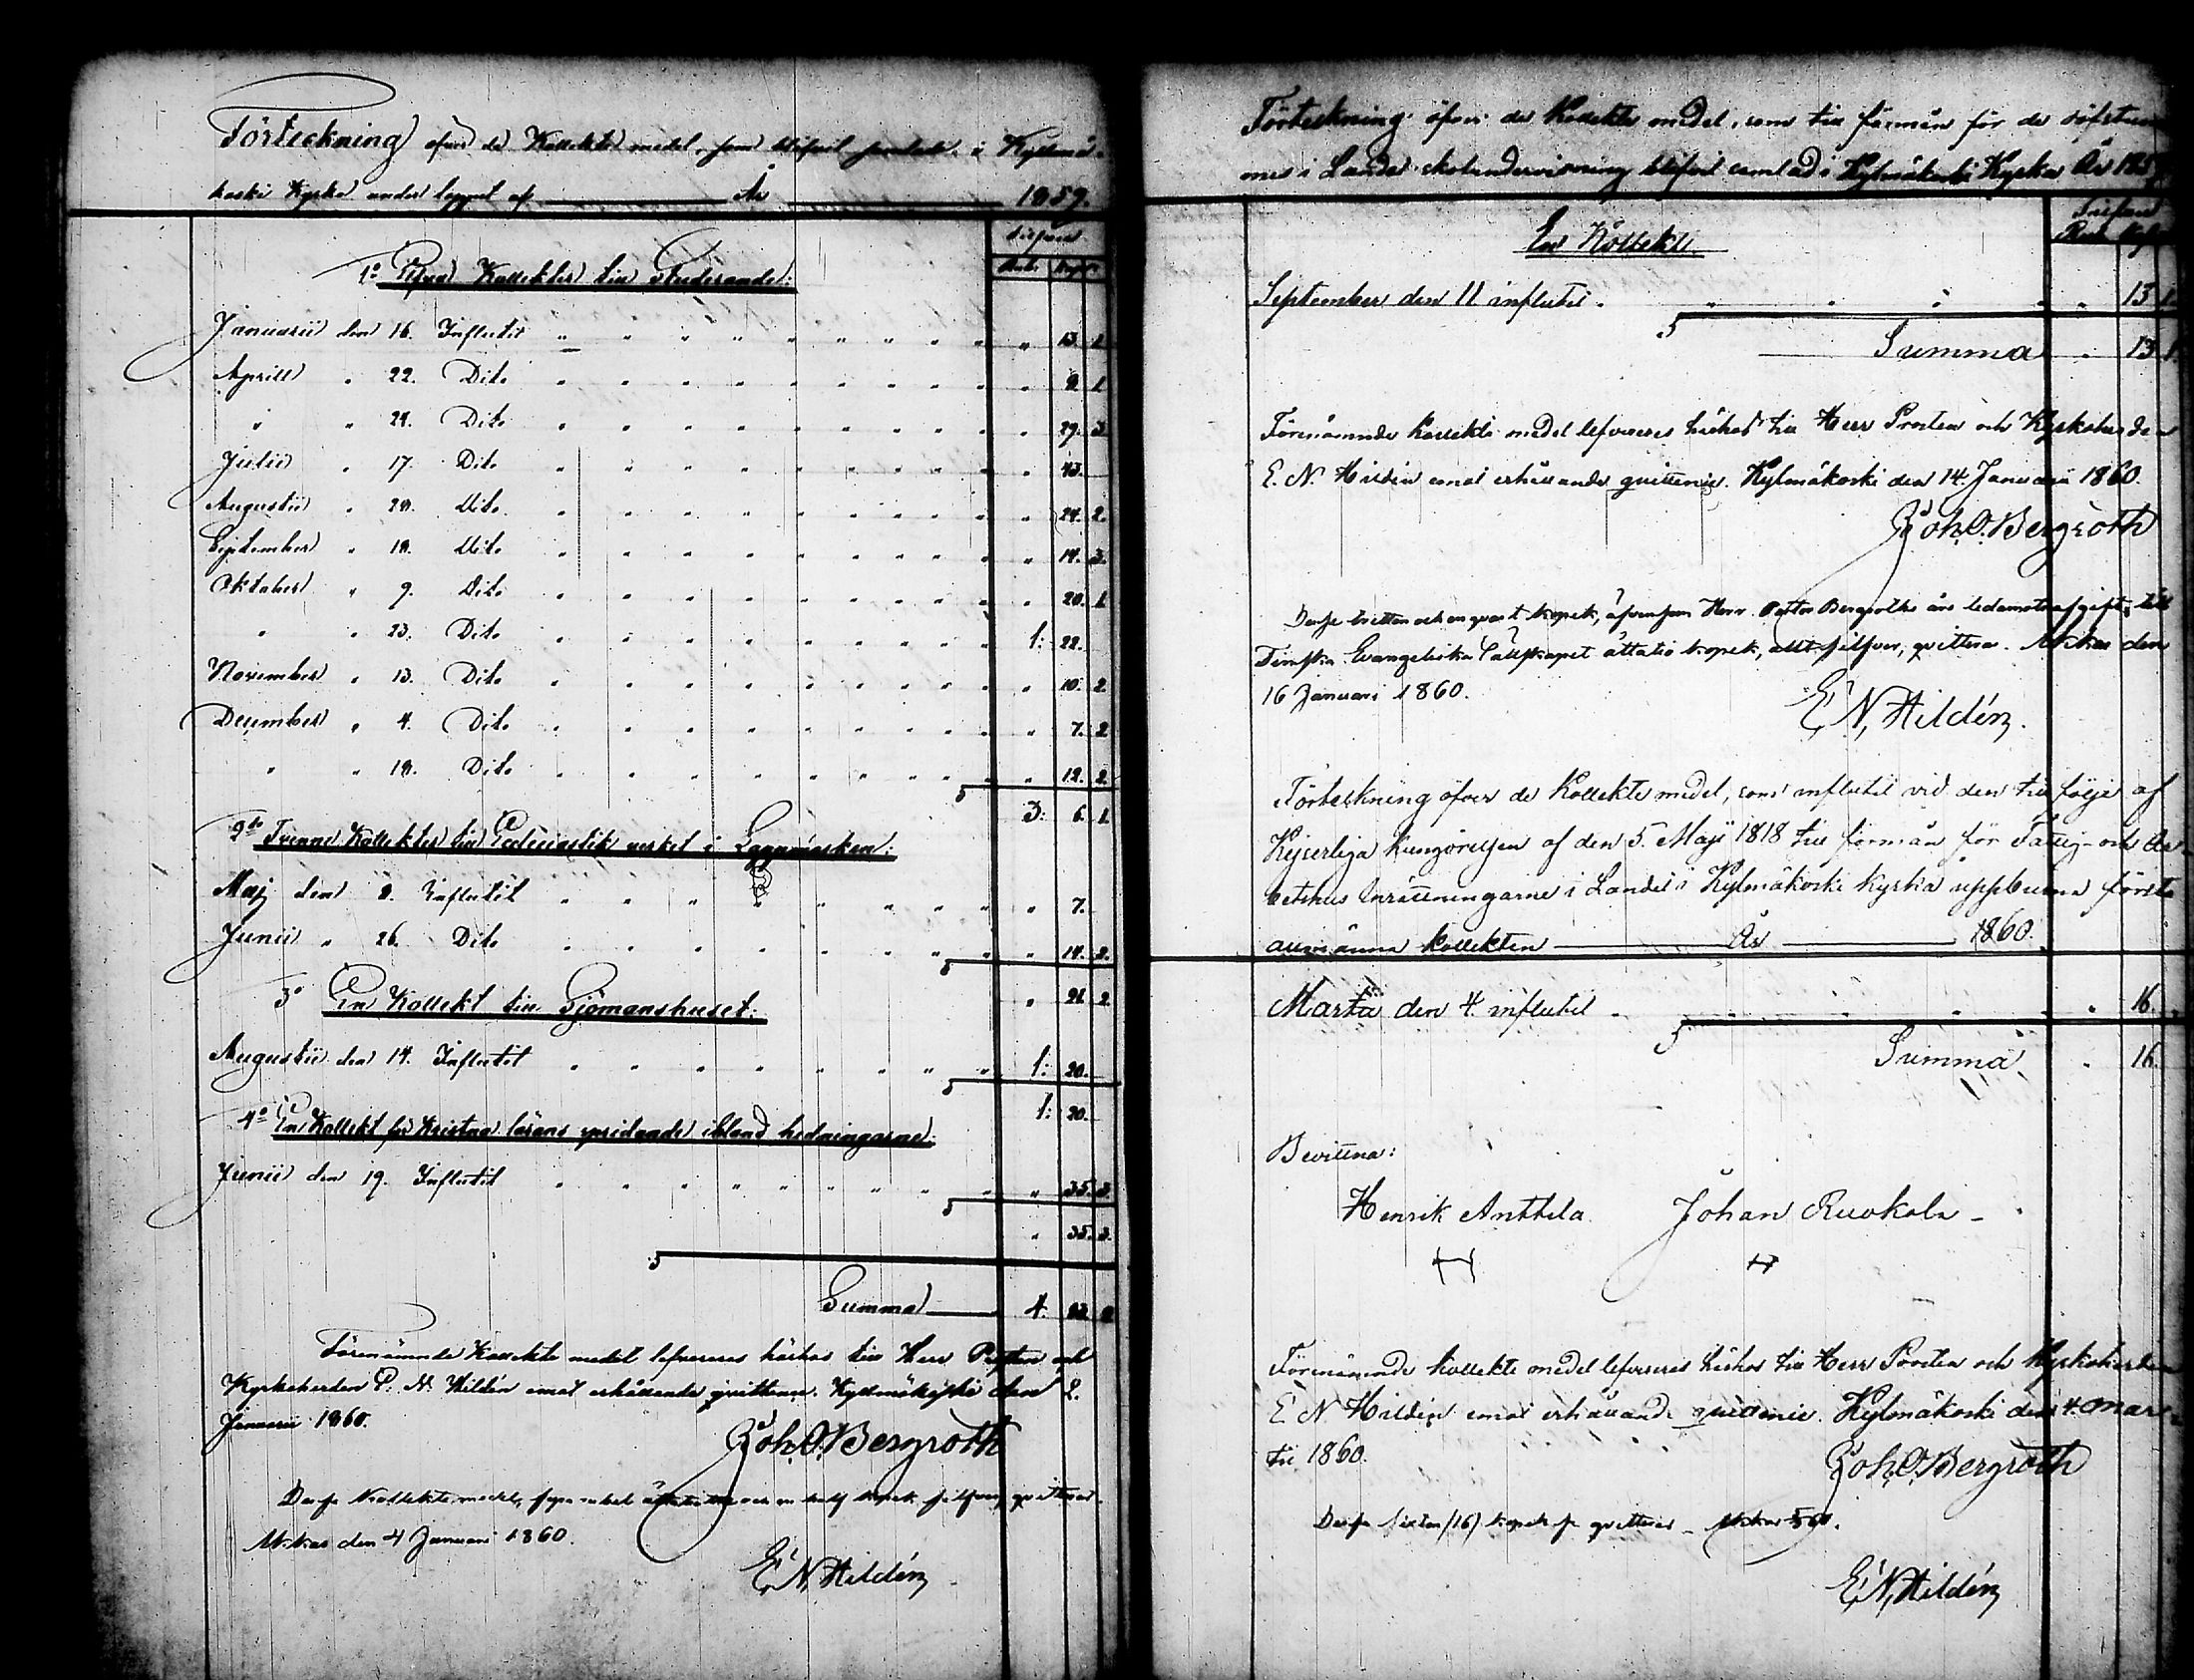 Förteckning öfver de Kollekte medel, som blifvit samlade i Kyllmä-
koski Kyrka under loppet af År 1859.
Silfver
Rub. Kop.
1º Elfva Kollekter till studerande:
Januarii den 16. Influtit " " 13. 1
Aprill " 22. Dito " 8. 1
" " 24. Dito " 29. 3
Julii " 17. Dito " 43.
Augustii " 28. Dito " 24. 2.
September " 18. Dito " 14. 3.
Oktober " 9. Dito " 20. 1
" " 23. Dito 1: 22.
November " 13. Dito " 10. 2
December " 4. Dito " 7. 2
" " 18. Dito " 12. 2
3: 6. 1
2do Tvenne Kollekter till Ecclesiastik verket i Lappmarken:
Maj den 8. Influtit " 7.
Junii " 26. Dito " 14. 2.
" 21. 2
3º En Kollekt till Sjömanshuset:
Augustii den 14. Influtit 1: 20.
1: 20.
4º En Kollekt för Kristna lärans spridande ibland hedningarne:
Junii den 19. Influtit " 35. 3.
" 35. 3.
Summa 4. 83. 2
Förenämnde Kollekte medel lefvereras härhos till Herr Prosten och
Kyrkoherden E. N. Hildén emot erhållande qvittence. Kyllmäkoski den 2.
Januarii 1860.
Joh. O. Bergroth
Dessa Kollektmedel, fyra rubel åttatio tre och en half kopek silfver, qvitteras.
Akkas den 4 Januari 1860.
E. N. Hildén
Förteckning öfver de Kollekte medel, som till förmån för de döfstum-
mes i Landet skolundervisning blifvit samlad i Kylmäkoski Kyrka År 1859.
Silfver
Rub. Kop.
En Kollekt.
September den 11 influtit " 13 1.
Summa " 13 1.
Förenämnde Kollekte medel lefvereres härhos till Herr Prosten och Kyrkoherden
E. N. Hildén emot erhållande qvittence. Kylmäkoski den 14. Januarii 1860.
Joh. O. Bergroth
Dessa tretton och en qvart kopek, äfvensom Herr Pastor Bergroths års ledamotsafgift till
Finska Evangeliska Sällskapet åttatio kopek, allt silfver, qvitteras. Akkas den
16 Januari 1860.
E. N. Hildén.
Förteckning öfver de Kollekte medel, som influtit vid den till följe af
Kejserliga kungörelsen af den 5. Maji 1818 till förmån för Fattig- och Ar-
betshus Inrättningarne i Landet i Kylmäkoski kyrka uppburna första
allmänna Kollekten År 1860.
Martii den 4. influtit " 16.
Summa " 16.
Bevittna:
Henrik Anttila Johan Ruokola
Förenämnde kollekte medel lefvereres härhos till Herr Prosten och Kyrkoherden
E N Hildén emot erhållande qvittence. Kylmäkoski den 4. Mar-
tii 1860.
Joh. O. Bergroth
Dessa sexton (16) kopek sr qvitteras. Akkas
E. N. Hildén